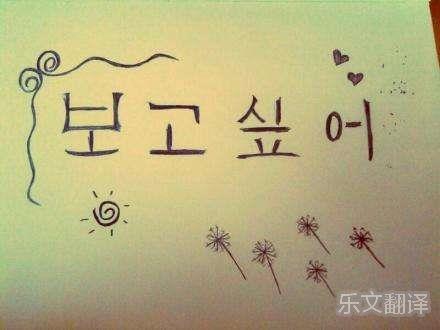 보고싶어
乐文翻译